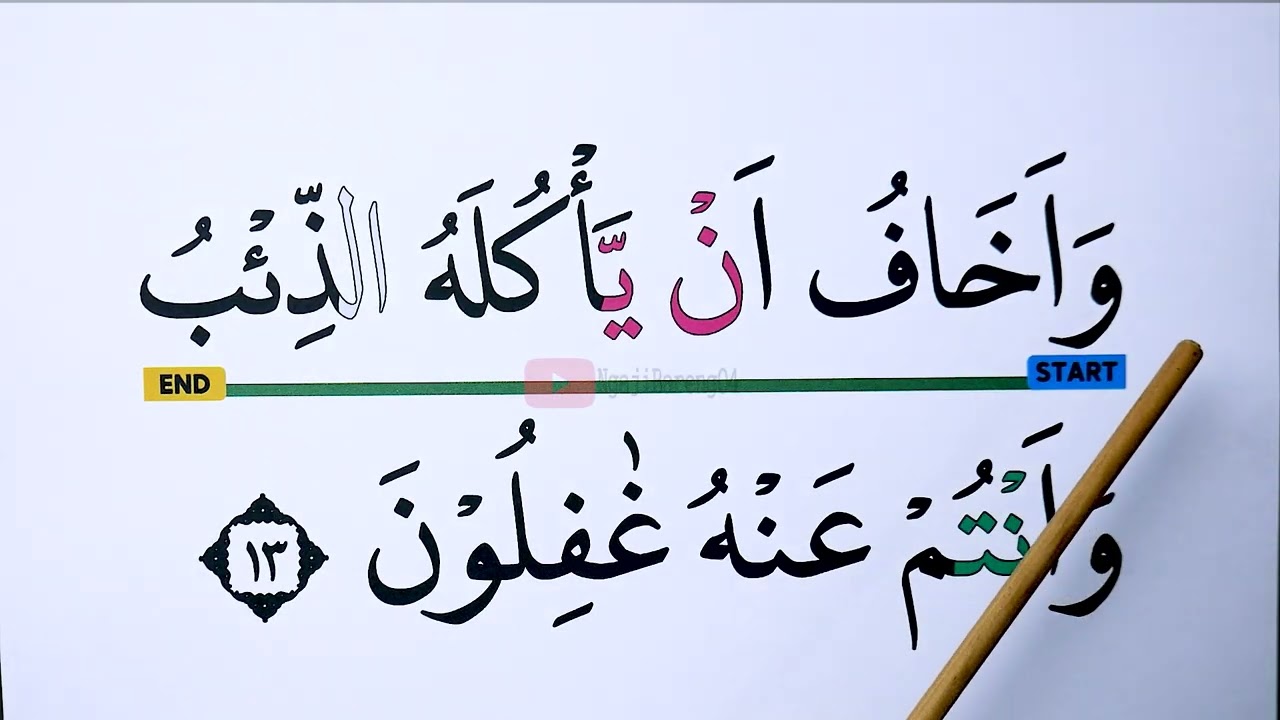 وَاَخَافُ اَنْ يَّأْكُلَهُ الذِّئْبُ
START END
NgajiBareng04
وَاَنْتُمْ عَنْهُ غٰفِلُوْنَ ١٣